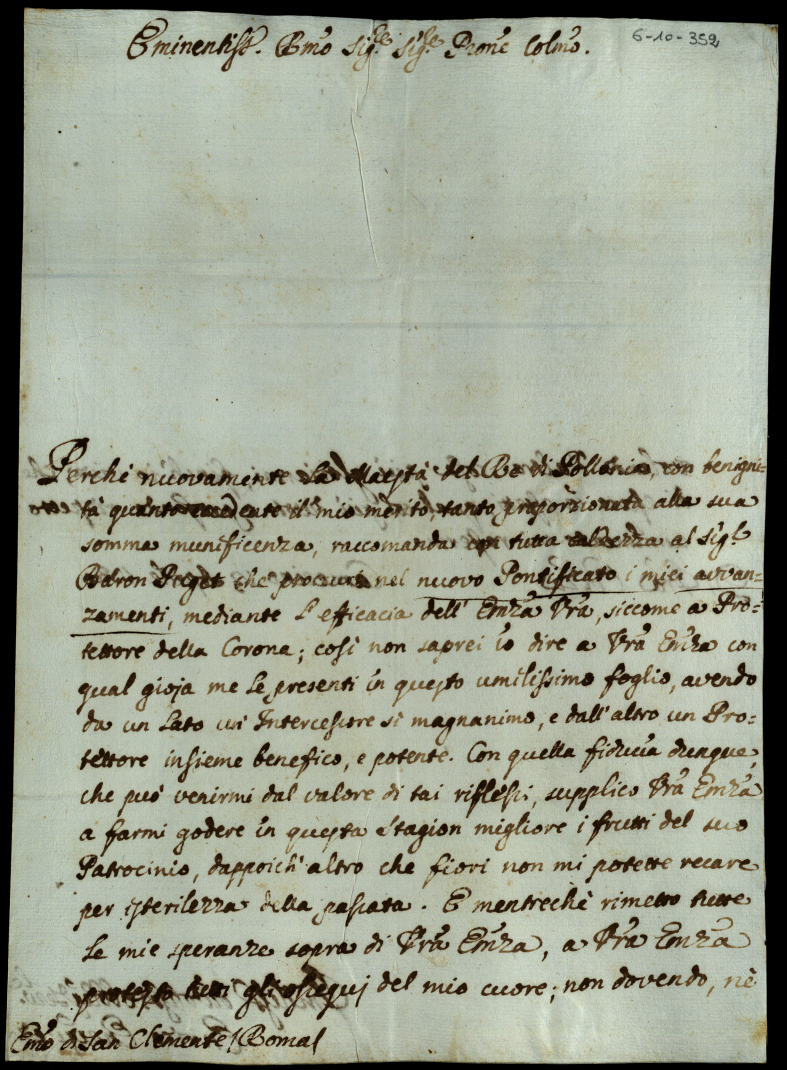 Eminentiss. Rmo Sigre. Sigre. Prone Colmo.
6-10-352
Perchè nuovamente la Maestà del Re di Pollonia, con benigni=
tà quanto eccedente il mio mèrito, tanto proporzionata alla sua
somma munificenza, raccomanda con tutta caldezza al Sigr.
Padron che procuri nel nuovo Pontificato i miei avvan=
zamenti, mediante l'efficacia dell'Emza Vra, siccome a Pro=
tettore della Corona; così non saprei io dire a Vra Emza con
qual gioja me le presenti in questo umilissimo foglio, avendo
da un lato un'Intercessore sì magnanimo, e dall'altro un Pro=
tettore insieme benefico, e potente. Con quella fiducia dunque,
che può venirmi dal valore di tai riflessi, supplico Vra Emza
a farmi godere in questa stagion migliore i frutti del suo
Patrocinio, dappoich'altro che fiori non mi potette recare
per isterilezza della passata. E mentrechè rimetto tutte
le mie speranze sopra di Vra Emza, a Vra Emza
protesto tutti gli ossequj del mio cuore; non dovendo, nè
Emo di San Clemente / Roma /